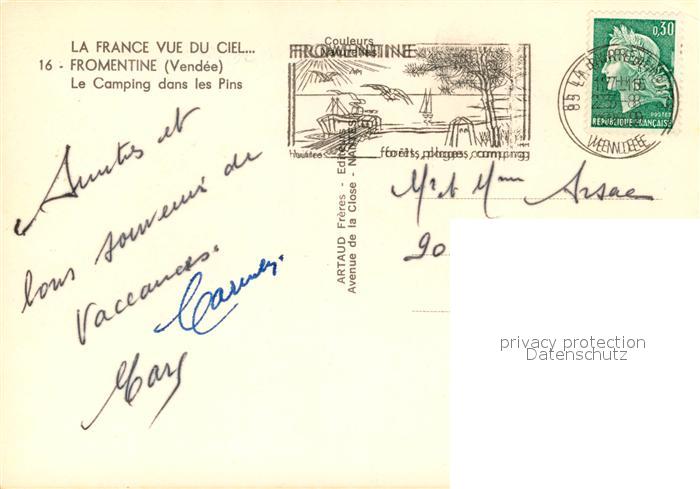 LA FRANCE VUE DU CIEL...
16 - FROMENTINE (Vendée)
Le Camping dans les Pins
Couleurs
Naturelles
FROMENTINE
forêts, plages, camping
0,30
POSTES
REPUBLIQUE FRANÇAISE
VENDEE
ARTAUD Frères - Editeurs
Avenue de la Close - NANTES
Amitiés et
bons souvenirs de
Vaccances.
Mr et Mme Arsac
90
privacy protection
Datenschutz